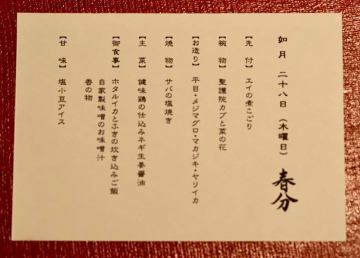 如月 二十八日 (木曜日) 春分
【先 付】 エイの煮こごり
【椀 物】 聖護院カブと菜の花
【お造り】 平目・メジマグロ・マカジキ・ヤリイカ
【焼 物】 サバの塩焼き
【主 菜】 健味鶏の仕込みネギ生姜醤油
【御食事】 ホタルイカとふきの炊き込みご飯
自家製味噌のお味噌汁
香の物
【甘 味】 塩小豆アイス